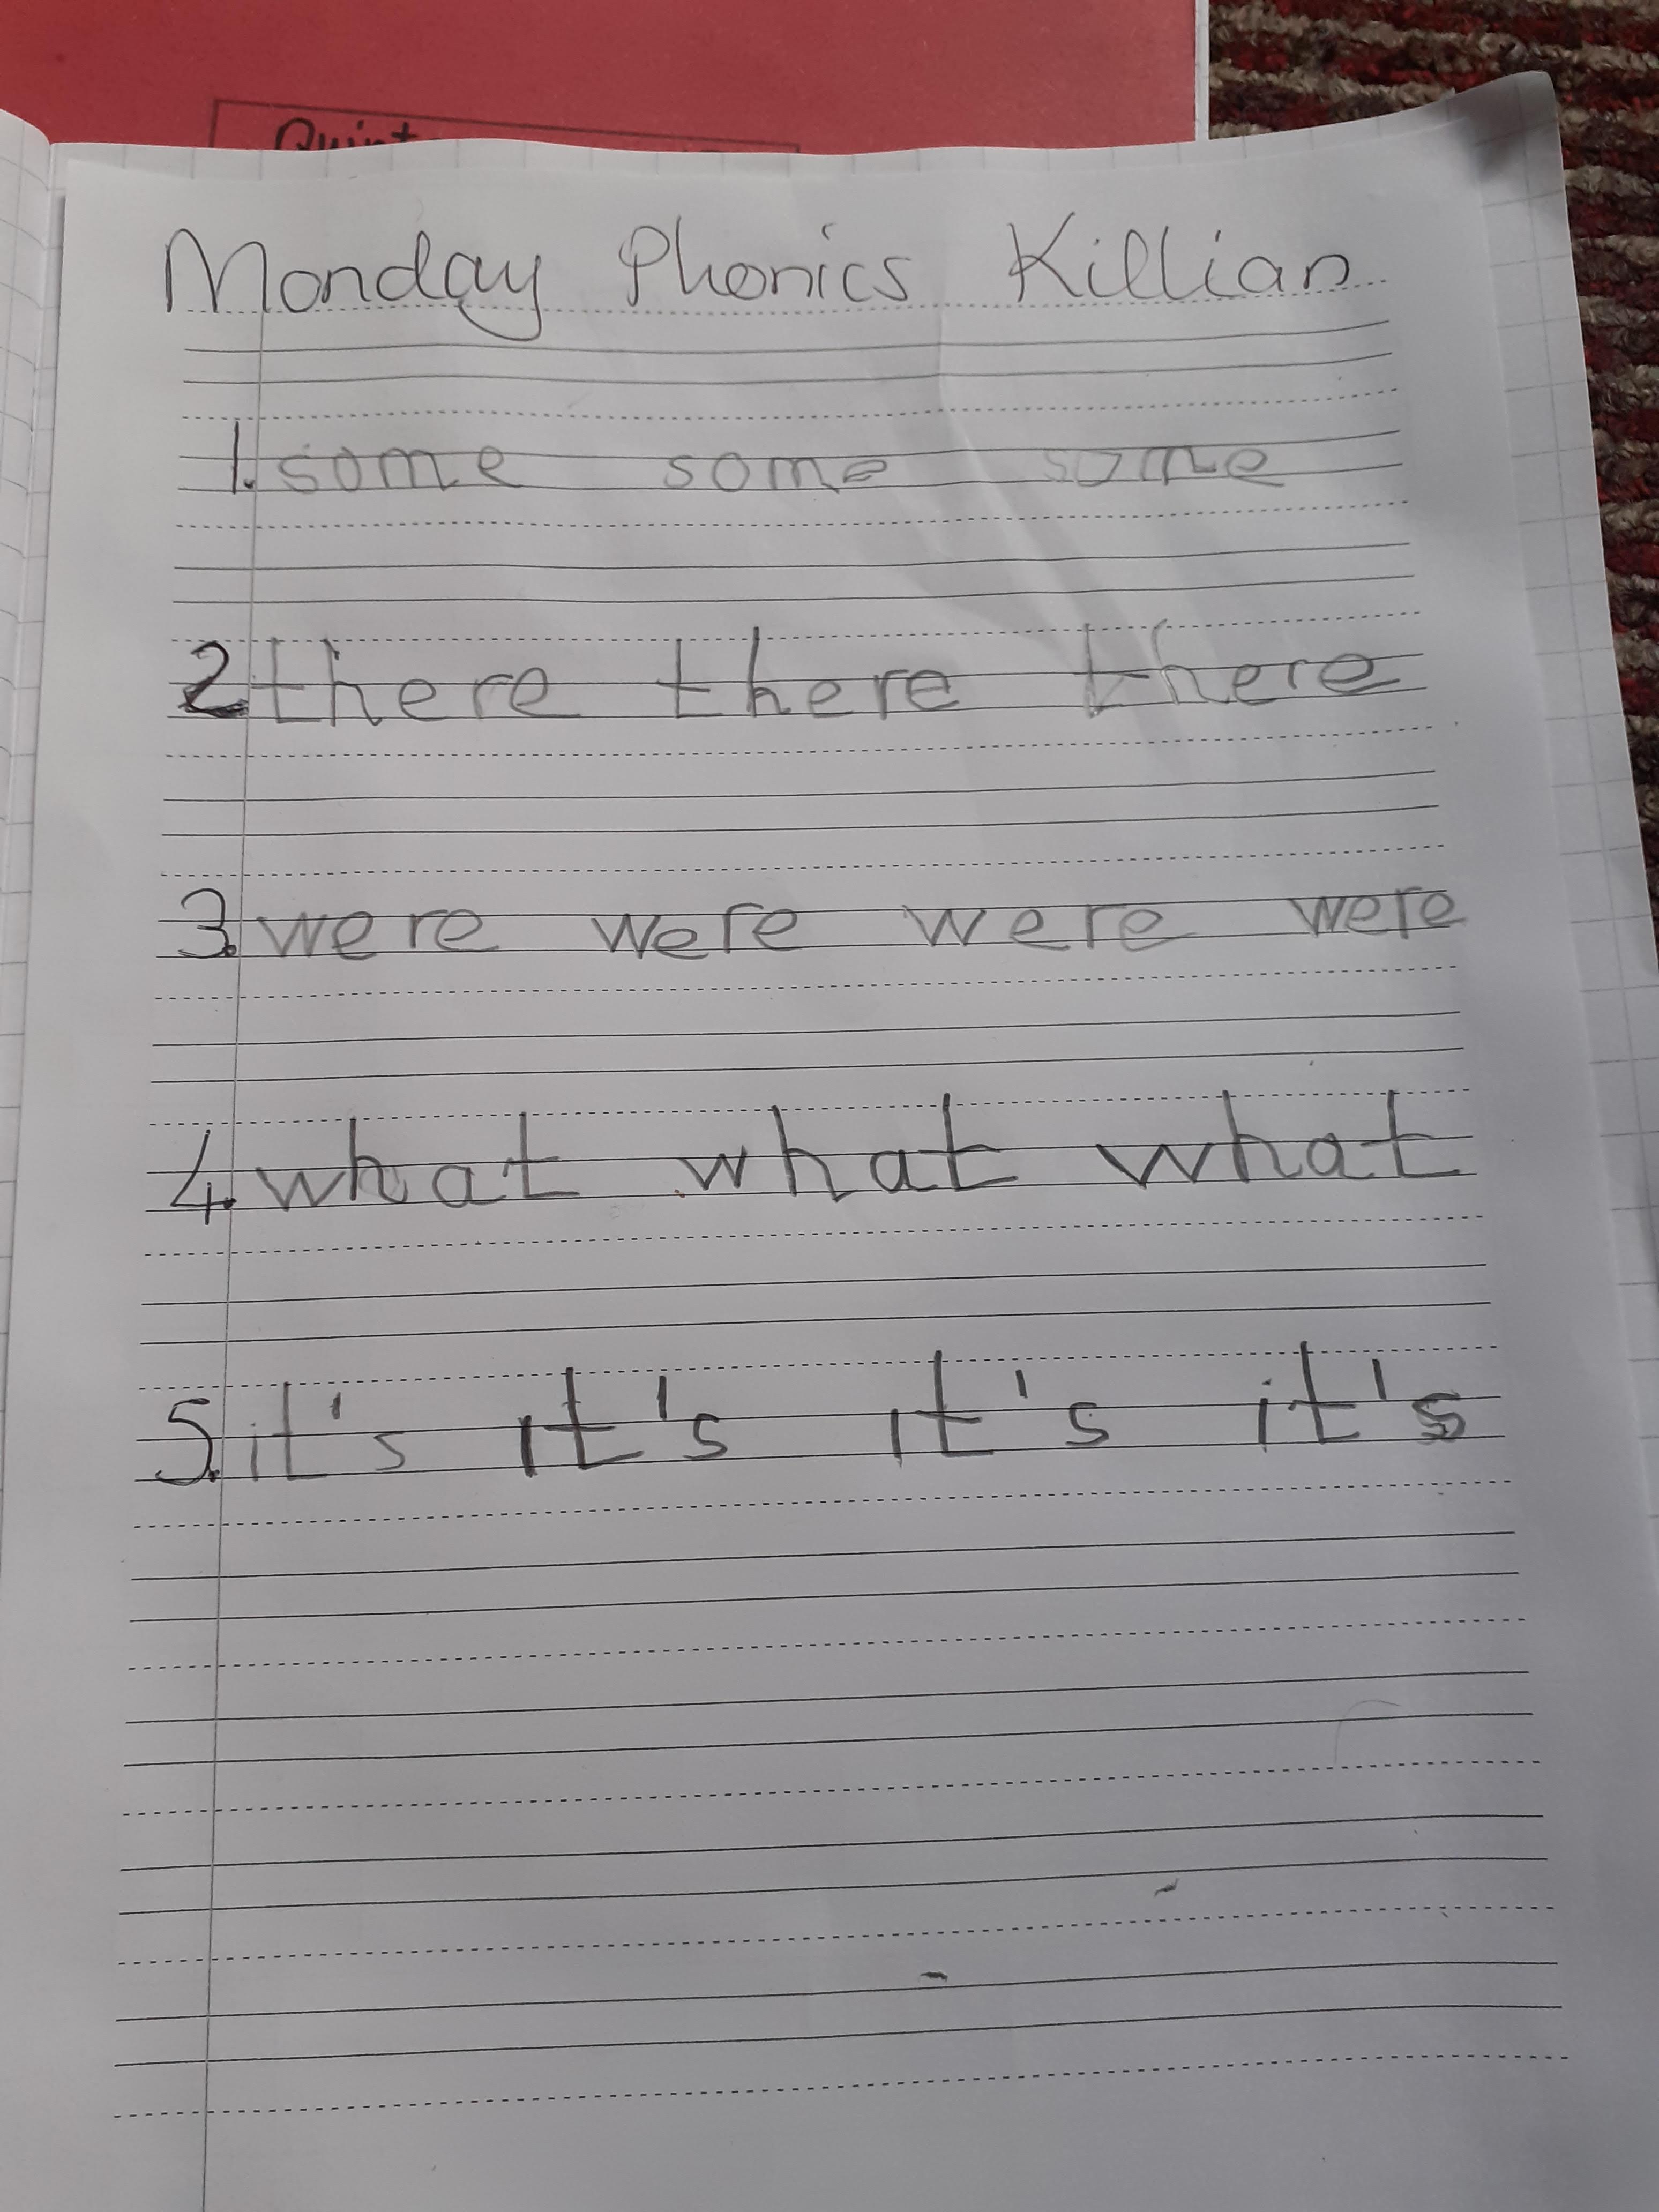 Monday Phonics Killian
1. some some some
2. there there there
3. were were were were
4. what what what
5. it's it's it's it's